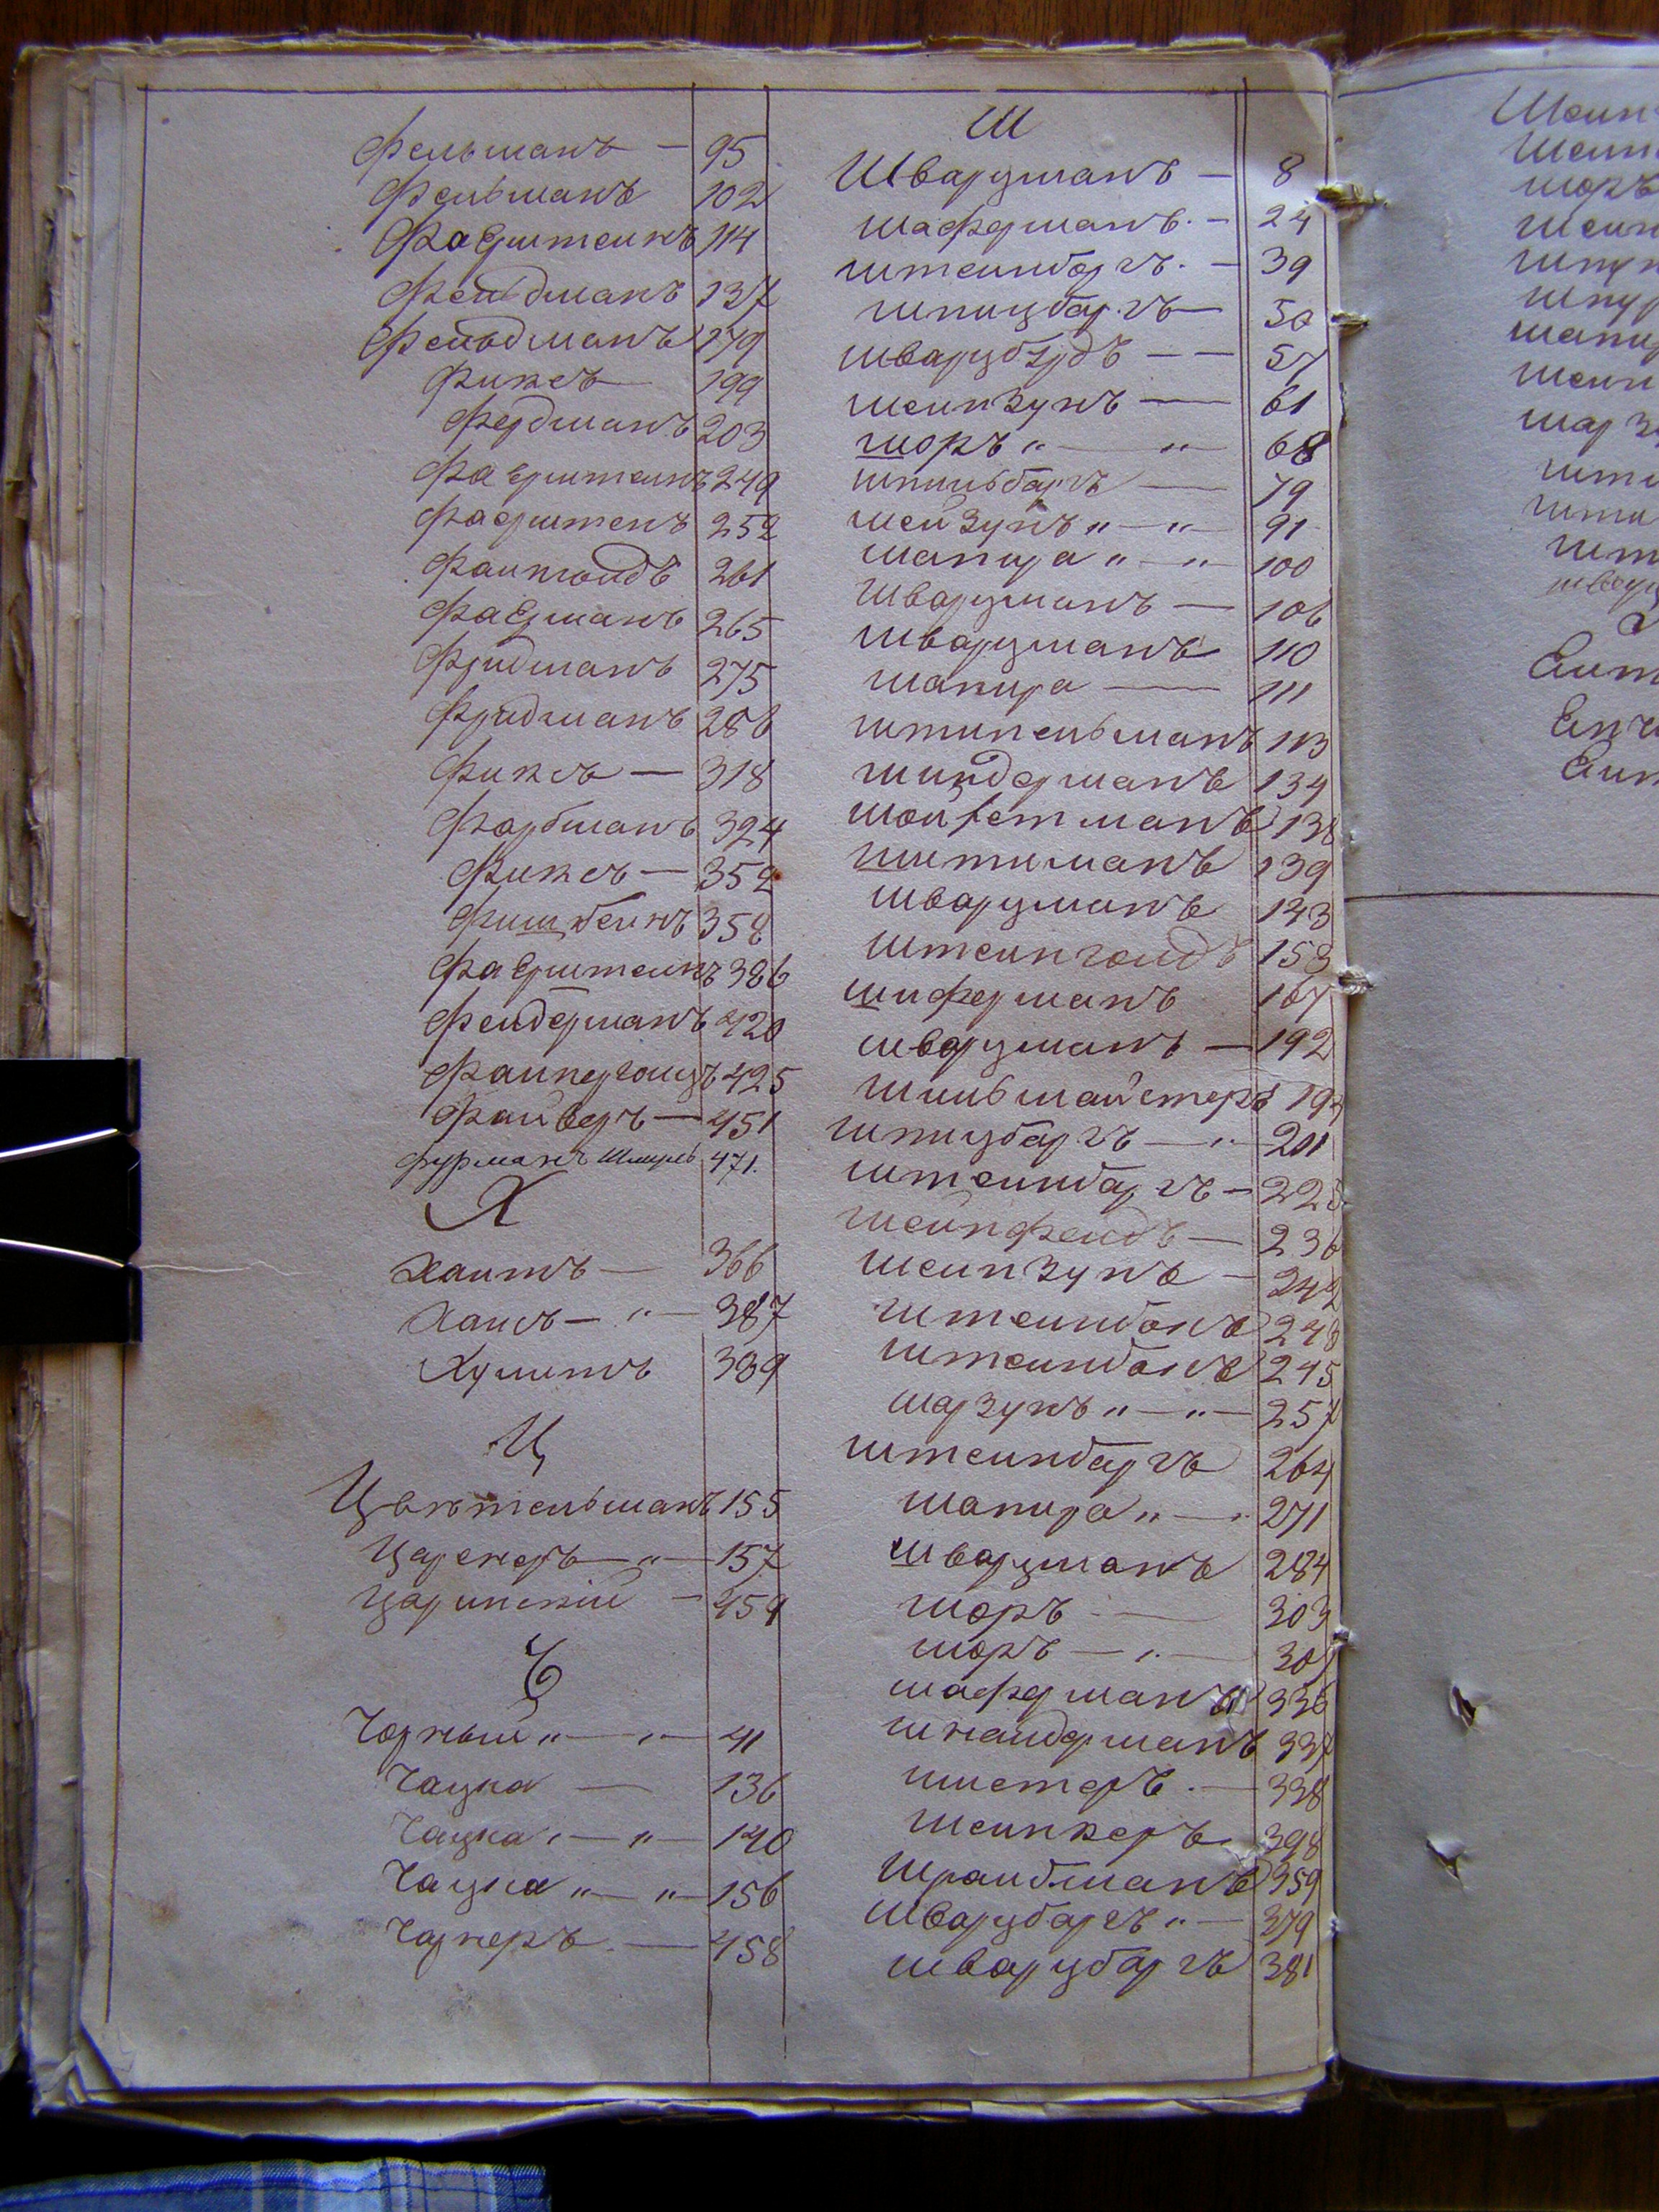 Фельманъ — 95
Фельманъ 102
Фаерштеинъ 114
Фельдманъ 137
Фельдманъ 179
Фиксъ 199
Фердманъ 203
Фаерштеинъ 249
Фаерштенъ 252
Фаингольдъ 261
Фаерманъ 265
Фридманъ 275
Фридманъ 286
Фиксъ — 318
Фарбманъ 324
Фиксъ — 352
Фишбеинъ 358
Фаерштеинъ 386
Фельдерманъ 420
Фаинергольцъ 425
Фаиверъ — 451
Фурманъ Шмуль 471.
Х
Хаитъ — 366
Хаисъ — „ — 387
Хулитъ 389
Ц
Цвительманъ 155
Царенеръ — „ — 157
Царинскій — 459
Ч
Чорный „ — „ — 41
Чацка — 136
Чацка „ — „ — 140
Чацка „ — „ — 156
Чарнеръ — 458
Ш
Шварцманъ — 8
Шаферманъ. — 24
Штеинбаргъ. — 39
Шпицбаргъ — 50
Шварцбурдъ — — 57
Шеинзунъ — 61
Шоръ „ — „ 68
Шпильбаргъ — 79
Шеизунъ „ — „ 91
Шапира „ — „ 100
Шварцманъ — 106
Шварцманъ 110
Шапира — 111
Штипельманъ 113
Шиндерманъ 134
Шойхетманъ 138
Шитиманъ 139
Шварцманъ 143
Штеингольдъ 158
Шиферманъ 167
Шварцманъ — 192
Шильмайстеръ
Шпицбаргъ — „ 201
Штеинбаргъ —
Шеинфельдъ — 236
Шеинзунъ — 242
Штеинбокъ 243
Штеинбокъ 245
Шарзунъ „ — „ — 257
Штеинбаргъ 264
Шапира „ — „ 271
Шварцманъ 284
Шоръ — 303
Шоръ — „ —
Шаферманъ 336
Шнаидерманъ 337
Шистеръ. — 338
Шеинкеръ 398
Шраибманъ 359
Шварцбаргъ „ — 379
Шварцбаргъ 381